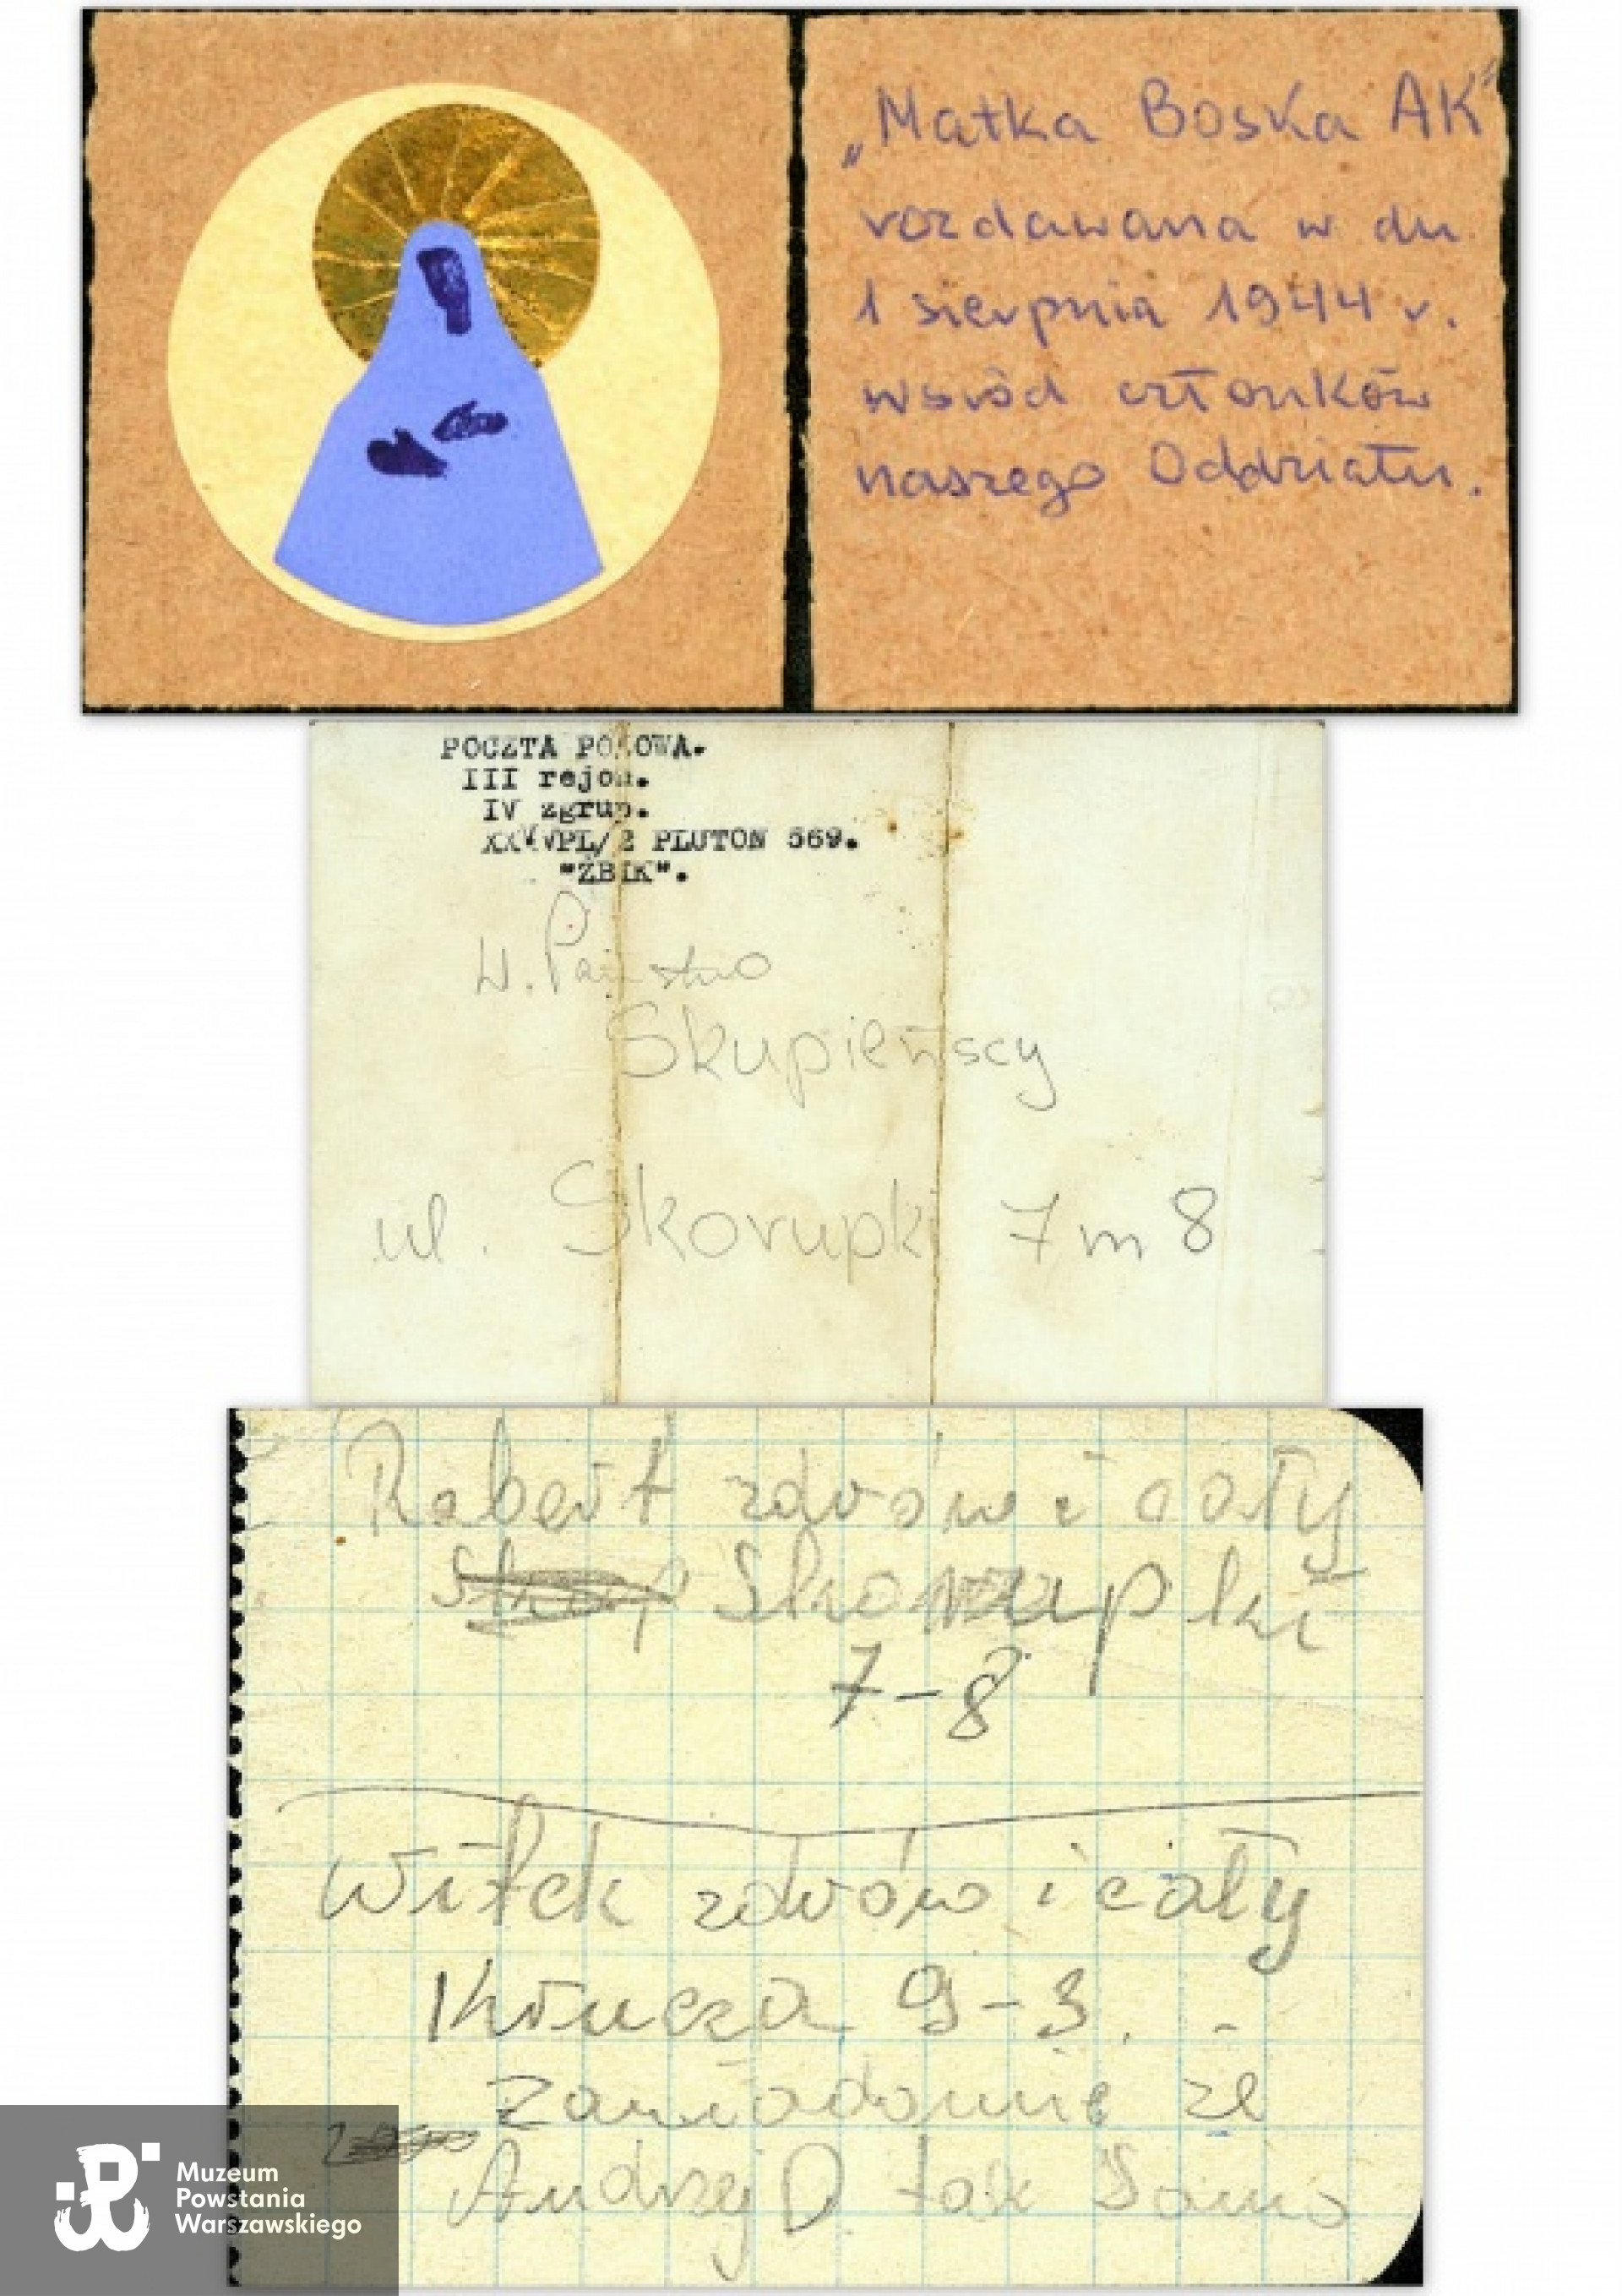 „Matka Boska AK”
rozdawana w dn
1 sierpnia 1944 r.
wśród członków
naszego Oddziału.
POCZTA POLOWA.
III rejon.
IV zgrup.
PL/2 PLUTON 569.
"ŻBIK".
W. Państwo
Skupieńscy
ul. Skorupki 7 m 8
Robert zdrów i cały
Skorupki
7-8
Witek zdrów i cały
Krucza 9-3.
Zawiadomić że
Andrzej D tak samo
Muzeum
Powstania
Warszawskiego